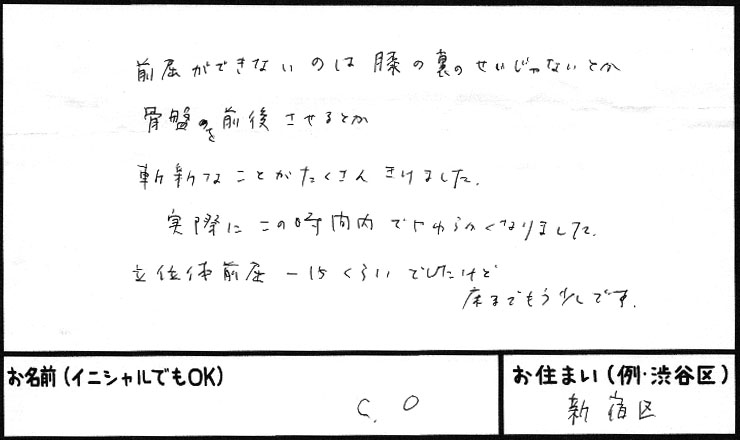 前屈ができないのは膝の裏のせいじゃないとか
骨盤を前後させるとか
斬新なことがたくさんきけました。
実際にこの時間内でやわらかくなりました。
立位体前屈 -15くらいでしたけど
床までもう少しです。
お名前(イニシャルでもOK)
お住まい(例・渋谷区)
C. O
新宿区